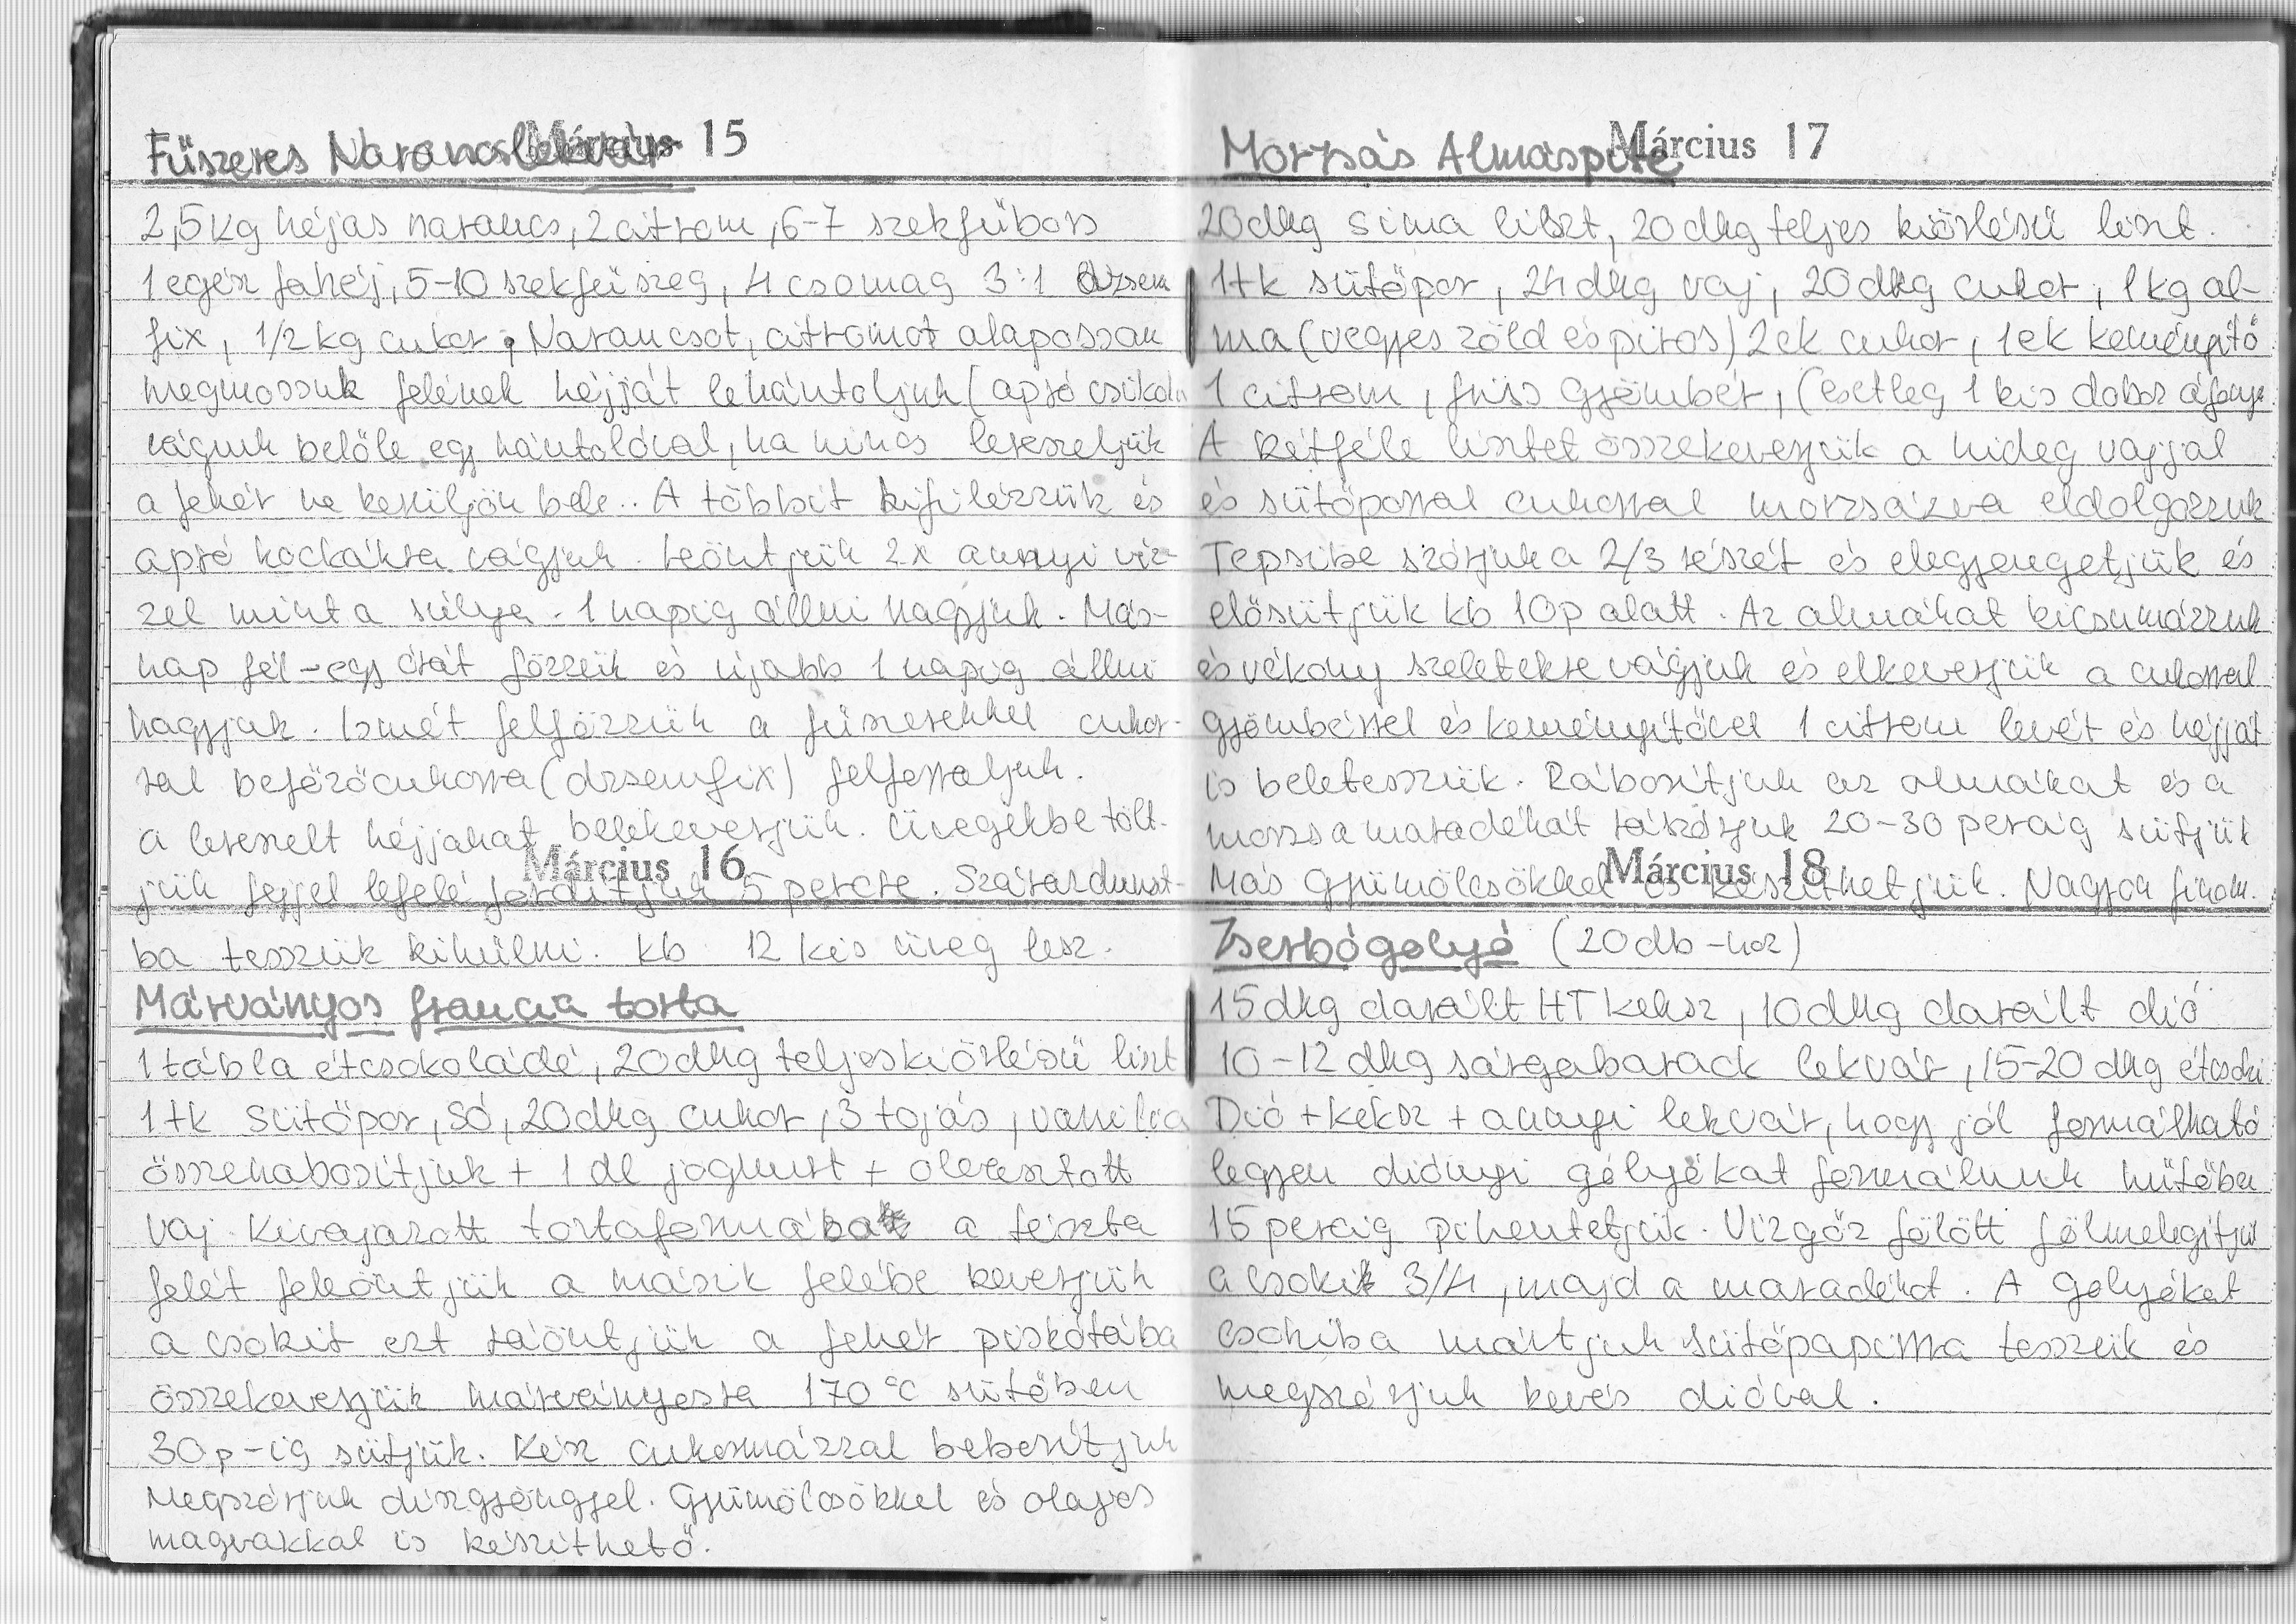 Március 15
Fűszeres Narancslekvár
2,5kg héjas narancs, 2 citrom, 6-7 szekfűbors
1 egész fahéj, 5-10 szekfűszeg, 4 csomag 3:1 dzsem
fix, 1/2 kg cukor. Narancsot, citromot alapossan
megmossuk felének héjját lehántoljuk (apró csíkokra
vágunk belőle egy hántolóval, ha nincs lereszeljük
a fehér ne kerüljön bele.. A többit kifilézzük és
apró kockákra vágjuk. leöntjük 2x annyi víz-
zel mint a súlya. 1 napig állni hagyjuk. Más-
nap fél-egy órát főzzük és újabb 1 napig állni
hagyjuk. Ismét felfőzzük a fűszerekkel cukor-
ral befőzőcukorra (dzsemfix) felforraljuk.
a lereszelt héjjakat belekeverjük. Üvegekbe tölt-
Március 16
jük fejjel lefelé fordítjuk 5 percre. Szárazdunszt-
ba tesszük kihűlni. kb 12 kis üveg lesz.
Márványos francia torta
1 tábla étcsokoládé, 20dkg teljeskiőrlésű liszt
1tk sütőpor, só, 20dkg cukor, 3 tojás, vanilia
összehabosítjuk + 1 dl joghurt + olvasztott
vaj. Kivajazott tortaformába a tészta
felét feleöntjük a másik felébe keverjük
a csokit ezt ráöntjük a fehér piskótába
összekeverjük márványosra 170°C sütőben
30p-ig sütjük. Kész cukormázzal beborítjuk
Megszórjuk díszgyönggyel. Gyümölcsökkel és olajos
magvakkal is készíthető.
Március 17
Morzsás Almáspite
20dkg sima liszt, 20dkg teljes kiőrlésű liszt.
1tk sütőpor, 24dkg vaj, 20dkg cukor, 1kg al-
ma (vegyes zöld és piros) 2ek cukor, 1ek keményítő
1 citrom, friss gyömbér, (esetleg 1 kis doboz áfonya
A kétféle lisztet összekeverjük a hideg vajjal
és sütőporral cukorral morzsázva eldolgozzuk
Tepsibe szórjuk a 2/3 részét és elegyengetjük és
elősütjük kb 10p alatt. Az almákat kicsumázzuk
és vékony szeletekre vágjuk és elkeverjük a cukorral
gyömbérrel és keményítővel 1 citrom levét és héjját
is beletesszük. Ráborítjuk az almákat és a
morzsa maradékát rászórjuk 20-30 percig sütjük
Március 18
Más gyümölcsökkel is készíthetjük. Nagyon finom.
Zserbógolyó (20db-hoz)
15dkg darált HT keksz, 10dkg darált dió
10-12 dkg sárgabarack lekvár, 15-20 dkg étcsoki
Dió + keksz + annyi lekvár, hogy jól formálható
legyen diónyi gólyókat formálunk hűtőben
15 percig pihentetjük. Vízgőz fölött fölmelegítjük
a csokik 3/4, majd a maradékot. A golyókat
csokiba mártjuk sütőpapírra tesszük és
megszórjuk kevés dióval.